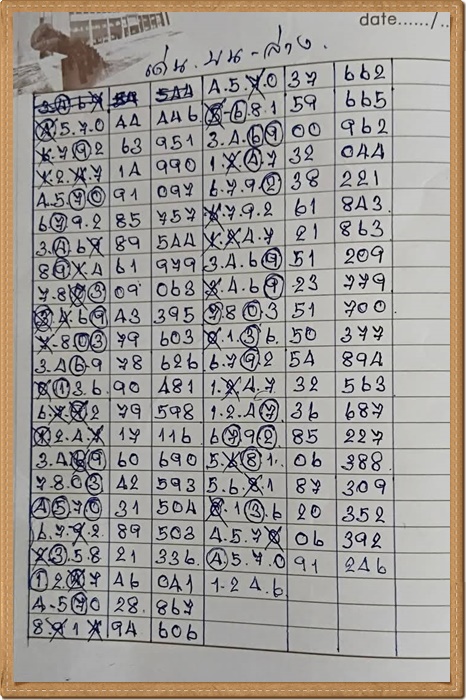 date....../..
เด่น. บน-ล่าง.
3.4.6.9 54 544 4.5.7.0 37 662
4.5.7.0 44 446 8-6.8.1 59 665
6.7.9.2 63 951 3.4.6.9 00 962
1.2.4.7 14 990 1.2.4.7 32 044
4.5.7.0 91 097 6.7.9.2 38 221
6.7.9.2 85 757 6.7.9.2 61 843
3.4.6.9 89 544 1.2.4.7 21 863
8.9.1.4 61 979 3.4.6.9 51 209
7.8.0.3 09 063 3.4.6.9 23 779
3.4.6.9 43 395 7.8.0.3 51 700
7.8.0.3 79 603 8.1.3.6. 50 377
3.4.6.9 78 626 6.7.9.2 54 894
8.1.3.6. 90 481 1.2.4.7 32 563
6.7.9.2 79 598 1.2.4.7 36 687
1.2.4.7 17 116 6.7.9.2 85 227
3.4.6.9 60 690 5.6.8.1. 06 388
7.8.0.3 42 593 5.6.8.1 87 309
4.5.7.0 31 504 8.1.3.6 20 352
6.7.9.2. 89 503 4.5.7.0 06 392
2.3.5.8 21 336. 4.5.7.0 91 246
1.2.4.7 46 041 1-2 4.6.
4-5.7.0 28. 867
8.9.1.4 94 606